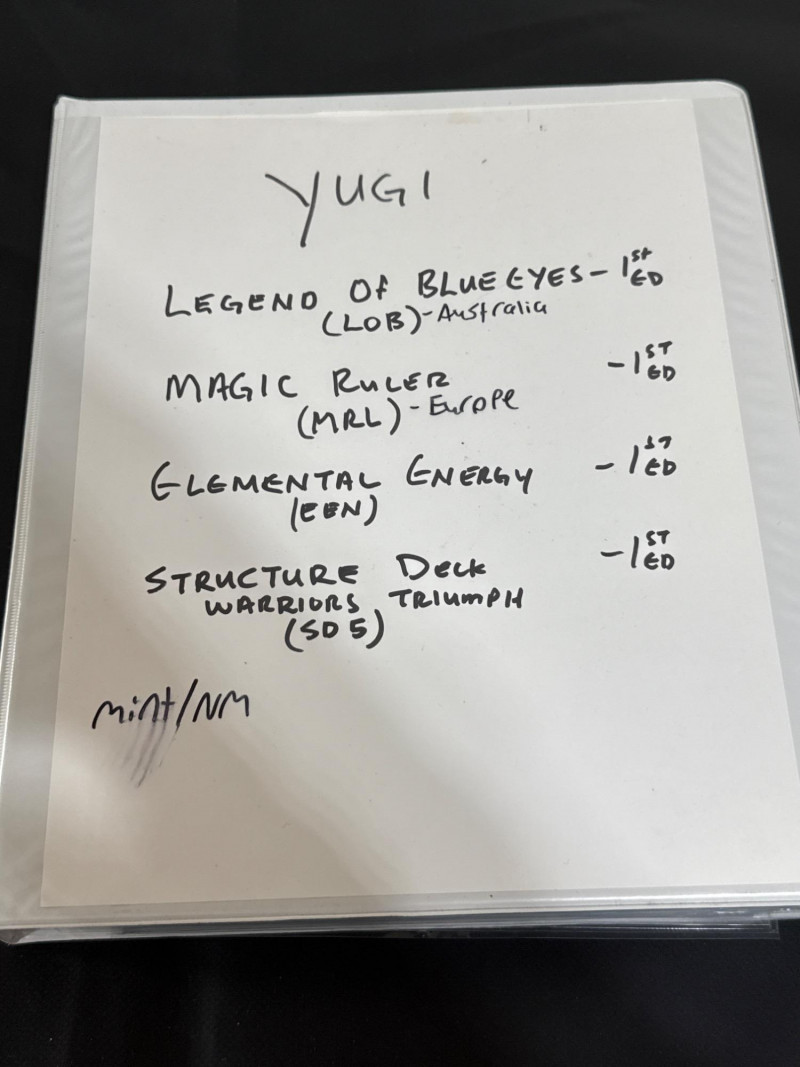 YUGI
LEGEND OF BLUE EYES - 1ST ED
(LOB) - Australia
MAGIC RULER - 1ST ED
(MRL) - Europe
ELEMENTAL ENERGY - 1ST ED
(EEN)
STRUCTURE Deck - 1ST ED
WARRIORS TRIUMPH
(SD5)
mint/NM